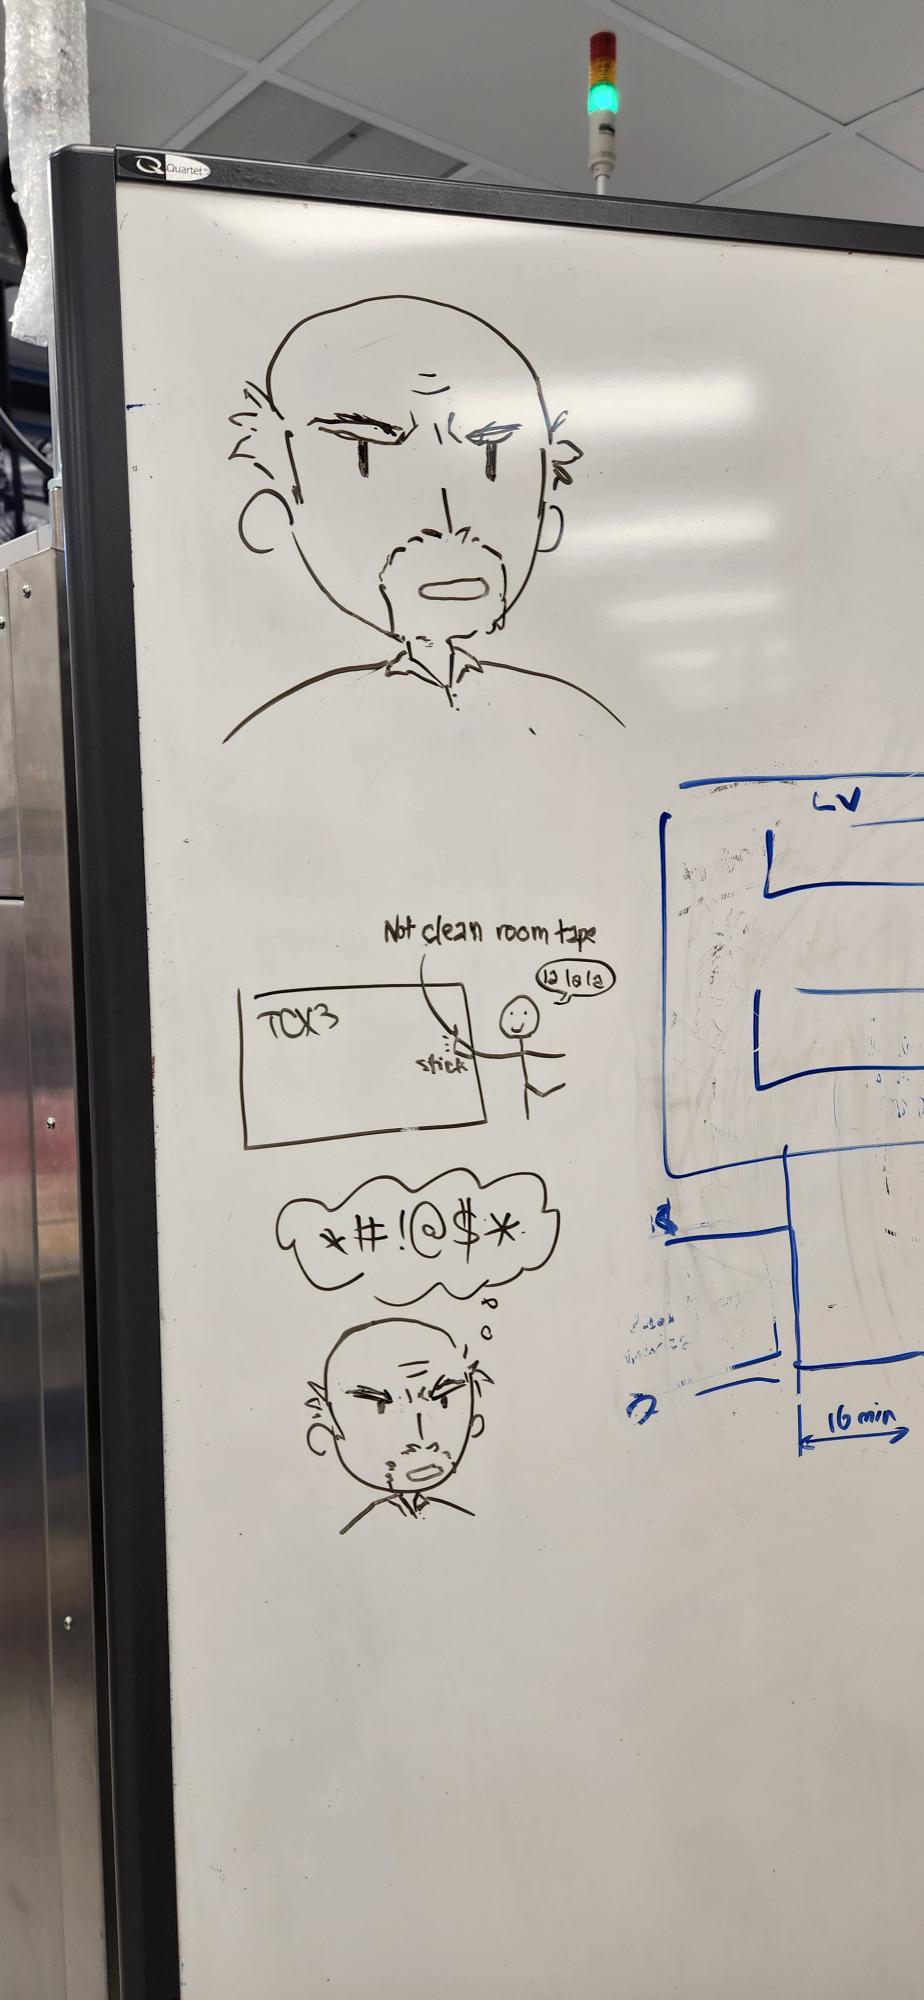 Quartet
LV
Not clean room tape
la la la
TCX3
stick
*#!@$*
16 min